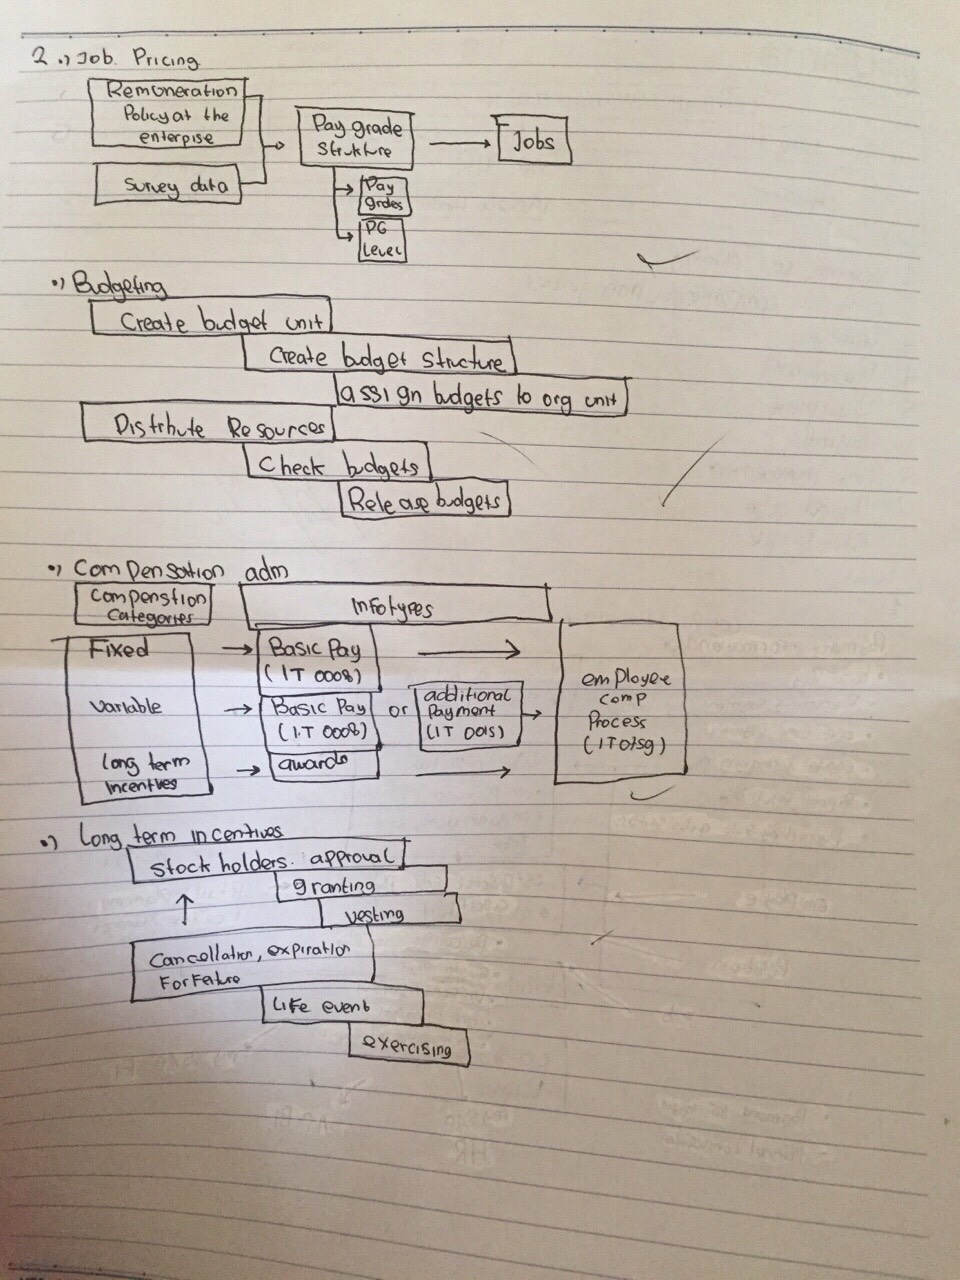 2.) Job Pricing
Remuneration
Policy at the
enterpise
Survey data
Pay grade
Strukture
Jobs
Pay
grdes
PG
Level
.) Budgeting
Create budget unit
Create budget structure
assign budgets to org unit
Distribute Resources
Check budgets
Release budgets
.) Compensation adm
Compenstion
Categories
infotypes
Fixed
Basic Pay
(IT 0008)
Variable
Basic Pay
(IT 0008)
or
additional
Payment
(IT 0015)
Long term
incentives
awards
employee
comp
Process
(IT0759)
.) Long term incentives
Stock holders. approval
granting
vesting
Cancellation, expiration
Forfeiture
Life event
exercising